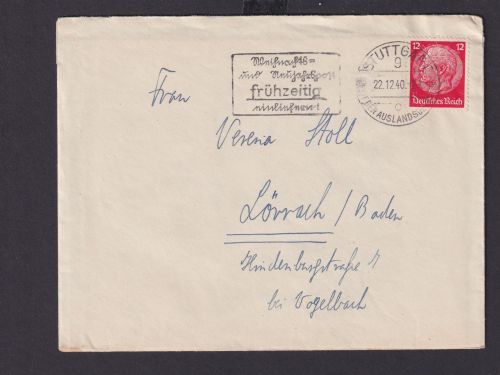 Weihnachts=
und Neujahrspost
frühzeitig
einliefern!
STUTTGA
9
22.12.40.
c
AUSLANDS
12 12
Deutsches Reich
Frau
Verena Stoll
Lörrach / Baden
Hindenburgstraße
bei Vogelbach